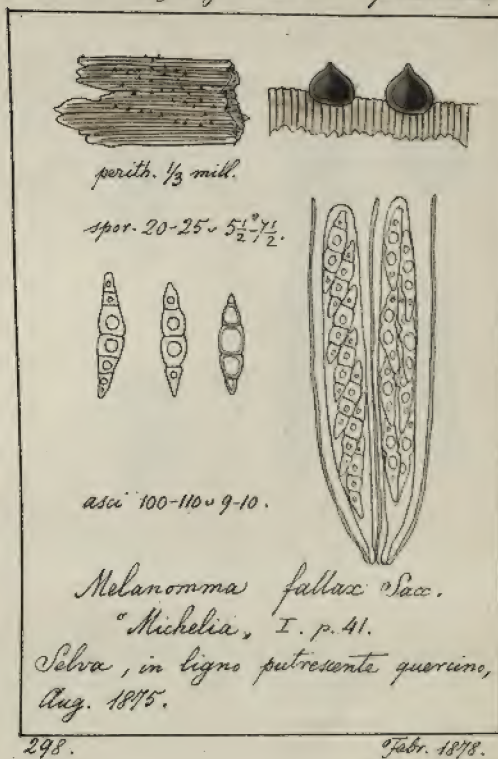 perith. 1/3 mill.
spor. 20-25 ᴗ 5½-7½.
asci 100-110 ᴗ 9-10.
Melanomma fallax Sacc.
Michelia, I. p. 41.
Selva, in ligno putrescente quercino,
Aug. 1875.
298.
Febr. 1878.